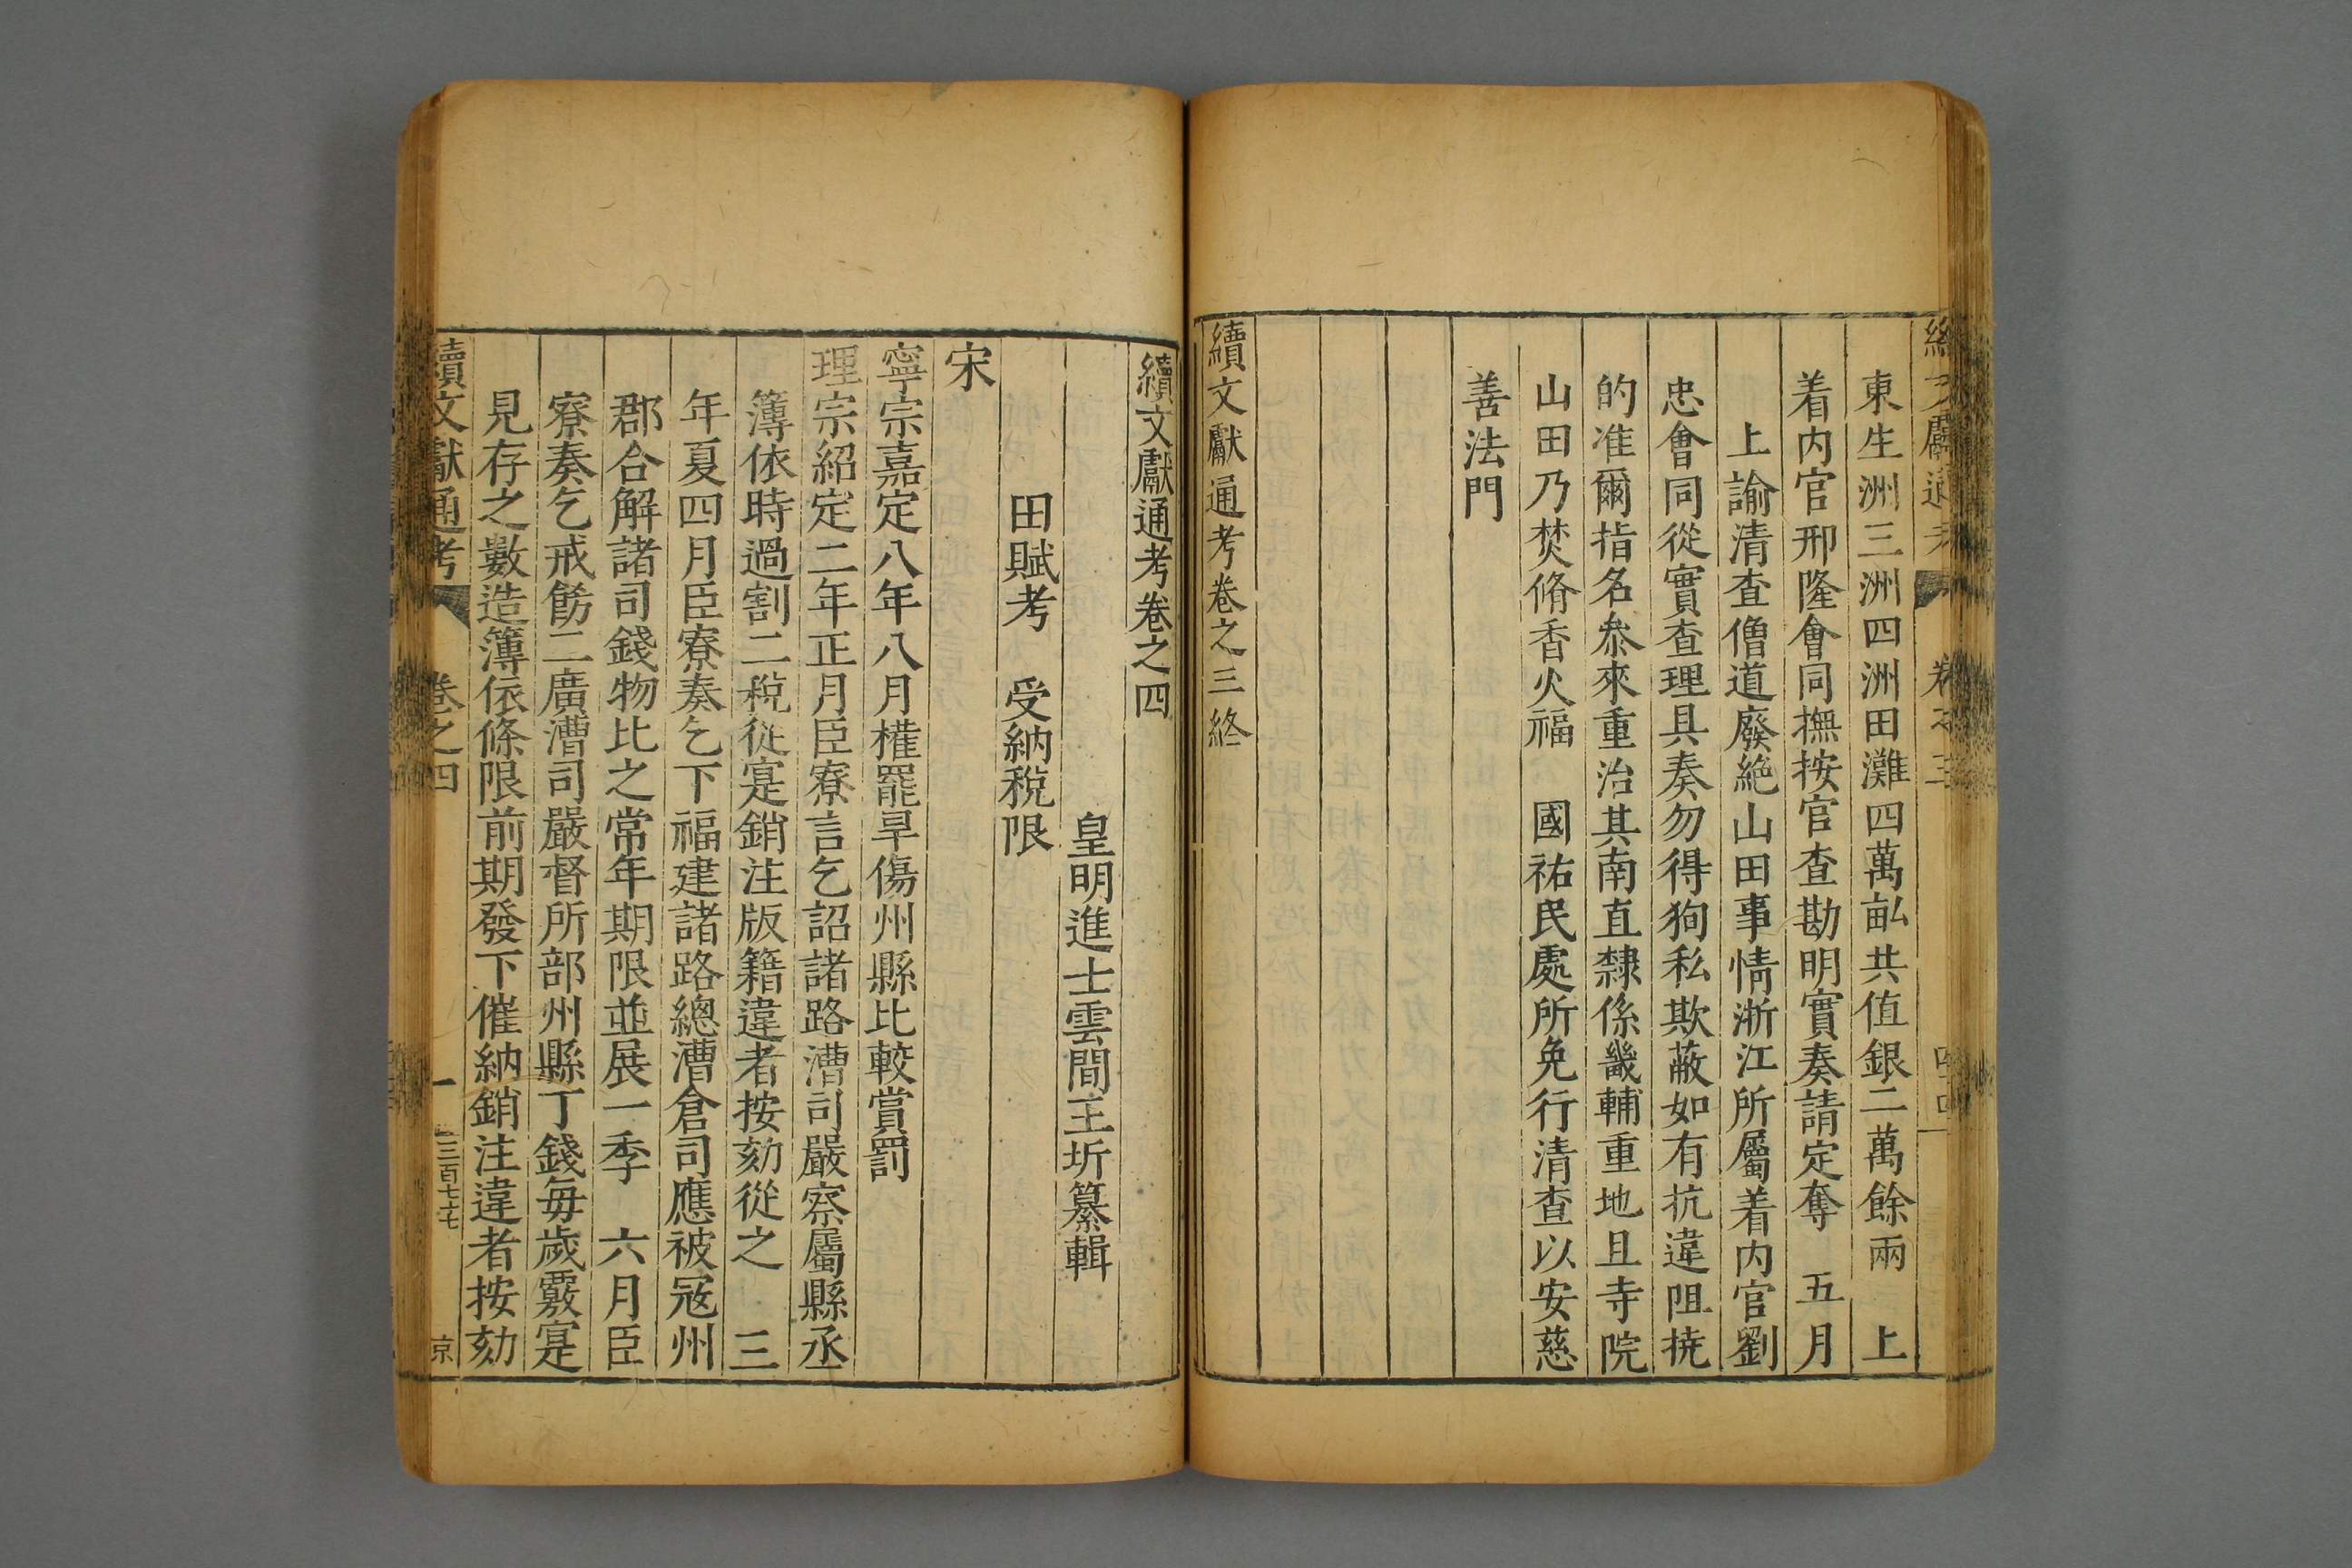 東生洲三洲四洲田灘四萬畆共值銀二萬餘兩　上
着内官邢隆會同撫按官查勘明實奏請定奪　五月
上諭清查僧道廢絶山田事情浙江所屬着内官劉
忠會同從實查理具奏勿得狥私欺蔽如有抗違阻撓
的准爾指名叅來重治其南直隸係畿輔重地且寺院
山田乃焚脩香火福　國祐民處所免行清查以安慈
善法門
續文獻通考卷之三終
續文獻通考卷之四
皇明進士雲間王圻纂輯
田賦考　受納稅限
宋
寧宗嘉定八年八月權罷旱傷州縣比較賞罰
理宗紹定二年正月臣寮言乞詔諸路漕司嚴察屬縣丞
簿依時過割二稅從寔銷注版籍違者按劾從之　三
年夏四月臣寮奏乞下福建諸路總漕倉司應被寇州
郡合解諸司錢物比之常年期限並展一季　六月臣
寮奏乞戒飭二廣漕司嚴督所部州縣丁錢每歲覈寔
見存之數造簿依條限前期發下催納銷注違者按劾
續文獻通考　卷之四　一　三百七十七　京